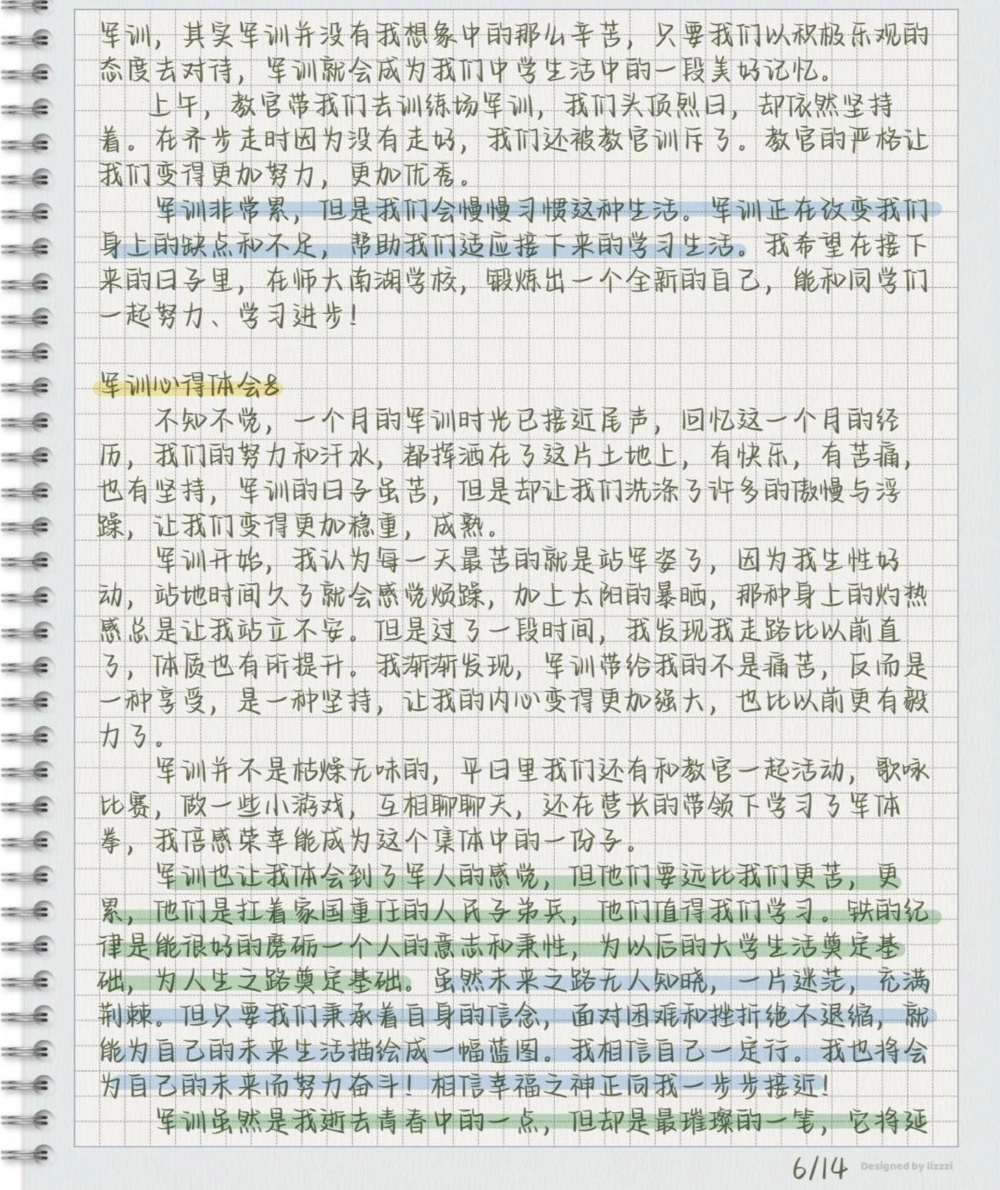 军训，其实军训并没有我想象中的那么辛苦，只要我们以积极乐观的
态度去对待，军训就会成为我们中学生活中的一段美好记忆。
上午，教官带我们去训练场军训，我们头顶烈日，却依然坚持
着。在齐步走时因为没有走好，我们还被教官训斥了。教官的严格让
我们变得更加努力，更加优秀。
军训非常累，但是我们会慢慢习惯这种生活。军训正在改变我们
身上的缺点和不足，帮助我们适应接下来的学习生活。我希望在接下
来的日子里，在师大南湖学校，锻炼出一个全新的自己，能和同学们
一起努力、学习进步！
军训心得体会8
不知不觉，一个月的军训时光已接近尾声，回忆这一个月的经
历，我们的努力和汗水，都挥洒在了这片土地上，有快乐，有苦痛，
也有坚持，军训的日子虽苦，但是却让我们洗涤了许多的傲慢与浮
躁，让我们变得更加稳重，成熟。
军训开始，我认为每一天最苦的就是站军姿了，因为我生性好
动，站地时间久了就会感觉烦躁，加上太阳的暴晒，那种身上的灼热
感总是让我站立不安。但是过了一段时间，我发现我走路比以前直
了，体质也有所提升。我渐渐发现，军训带给我的不是痛苦，反而是
一种享受，是一种坚持，让我的内心变得更加强大，也比以前更有毅
力了。
军训并不是枯燥无味的，平日里我们还有和教官一起活动，歌咏
比赛，做一些小游戏，互相聊聊天，还在营长的带领下学习了军体
拳，我倍感荣幸能成为这个集体中的一份子。
军训也让我体会到了军人的感觉，但他们要远比我们更苦，更
累，他们是扛着家国重任的人民子弟兵，他们值得我们学习。铁的纪
律是能很好的磨砺一个人的意志和秉性，为以后的大学生活奠定基
础，为人生之路奠定基础。虽然未来之路无人知晓，一片迷茫，充满
荆棘。但只要我们秉承着自身的信念，面对困难和挫折绝不退缩，就
能为自己的未来生活描绘成一幅蓝图。我相信自己一定行。我也将会
为自己的未来而努力奋斗！相信幸福之神正向我一步步接近！
军训虽然是我逝去青春中的一点，但却是最璀璨的一笔，它将延
6/14
Designed by lizzzi